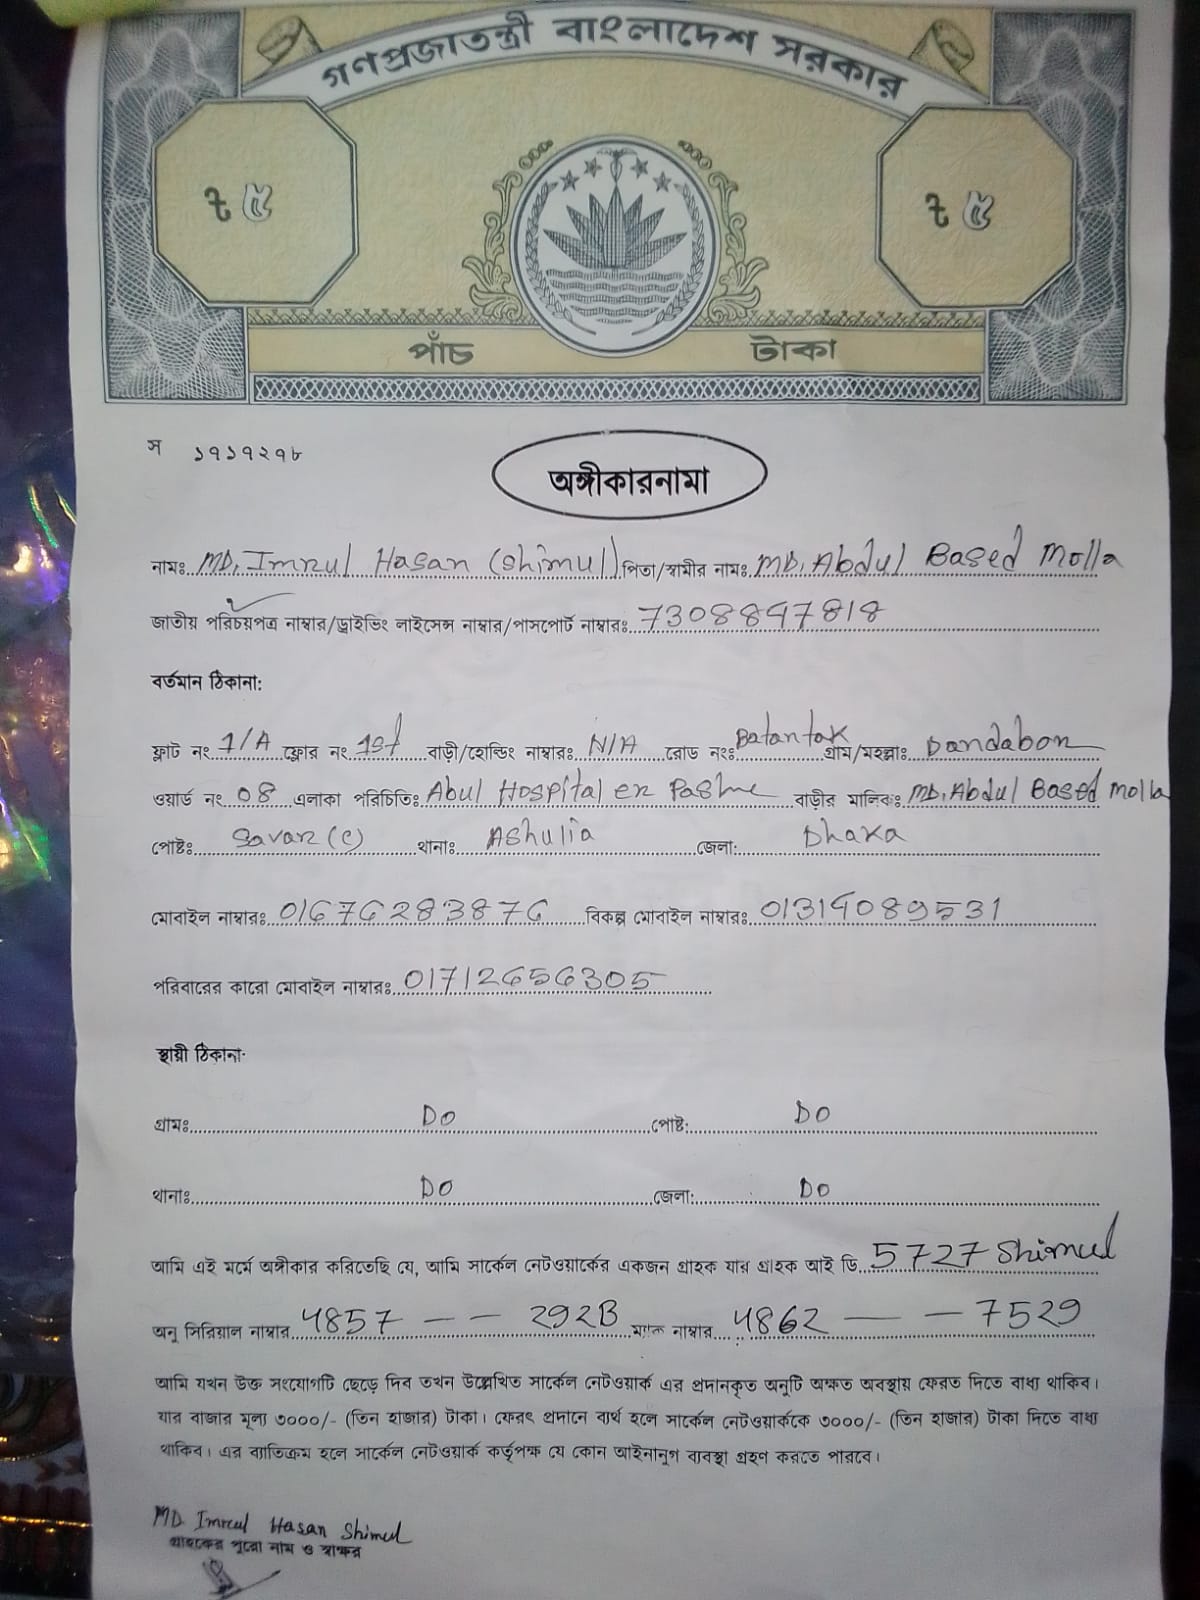 গণপ্রজাতন্ত্রী বাংলাদেশ সরকার
৳ ৫ ৳ ৫
পাঁচ টাকা
স ১৭১৭২৭৮
অঙ্গীকারনামা
নামঃ MD. Imrul Hasan (Shimul) পিতা/স্বামীর নামঃ MD. Abdul Based Molla
জাতীয় পরিচয়পত্র নাম্বার/ড্রাইভিং লাইসেন্স নাম্বার/পাসপোর্ট নাম্বারঃ 7308897818
বর্তমান ঠিকানা:
ফ্লাট নং 1/A ফ্লোর নং 1st বাড়ী/হোল্ডিং নাম্বারঃ N/A রোড নংঃ Batantak গ্রাম/মহল্লাঃ Dandabon
ওয়ার্ড নং 08 এলাকা পরিচিতিঃ Abul Hospital er Pashe বাড়ীর মালিকঃ MD. Abdul Based Molla
পোষ্টঃ Savar (c) থানাঃ Ashulia জেলা: Dhaka
মোবাইল নাম্বারঃ 01676283876 বিকল্প মোবাইল নাম্বারঃ 01319089531
পরিবারের কারো মোবাইল নাম্বারঃ 01712656305
স্থায়ী ঠিকানা:
গ্রামঃ DO পোষ্ট: DO
থানাঃ DO জেলা: DO
আমি এই মর্মে অঙ্গীকার করিতেছি যে, আমি সার্কেল নেটওয়ার্কের একজন গ্রাহক যার গ্রাহক আই ডি 5727 Shimul
অনু সিরিয়াল নাম্বার 4857 – – 292B ম্যাক নাম্বার 4862 – – 7529
আমি যখন উক্ত সংযোগটি ছেড়ে দিব তখন উল্লেখিত সার্কেল নেটওয়ার্ক এর প্রদানকৃত অনুটি অক্ষত অবস্থায় ফেরত দিতে বাধ্য থাকিব।
যার বাজার মূল্য ৩০০০/- (তিন হাজার) টাকা। ফেরৎ প্রদানে ব্যর্থ হলে সার্কেল নেটওয়ার্ককে ৩০০০/- (তিন হাজার) টাকা দিতে বাধ্য
থাকিব। এর ব্যতিক্রম হলে সার্কেল নেটওয়ার্ক কর্তৃপক্ষ যে কোন আইনানুগ ব্যবস্থা গ্রহণ করতে পারবে।
MD. Imrul Hasan Shimul
গ্রাহকের পুরো নাম ও স্বাক্ষর